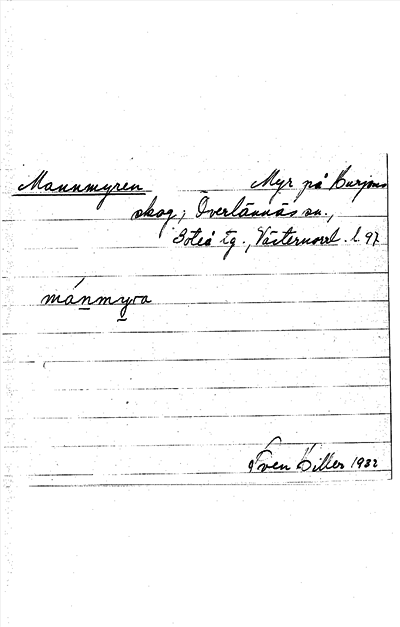 Mannmyren Myr på
skog, Överlännäs sn.,
Boteå tg., Västernorrl. l. 97
mánmyra
1932